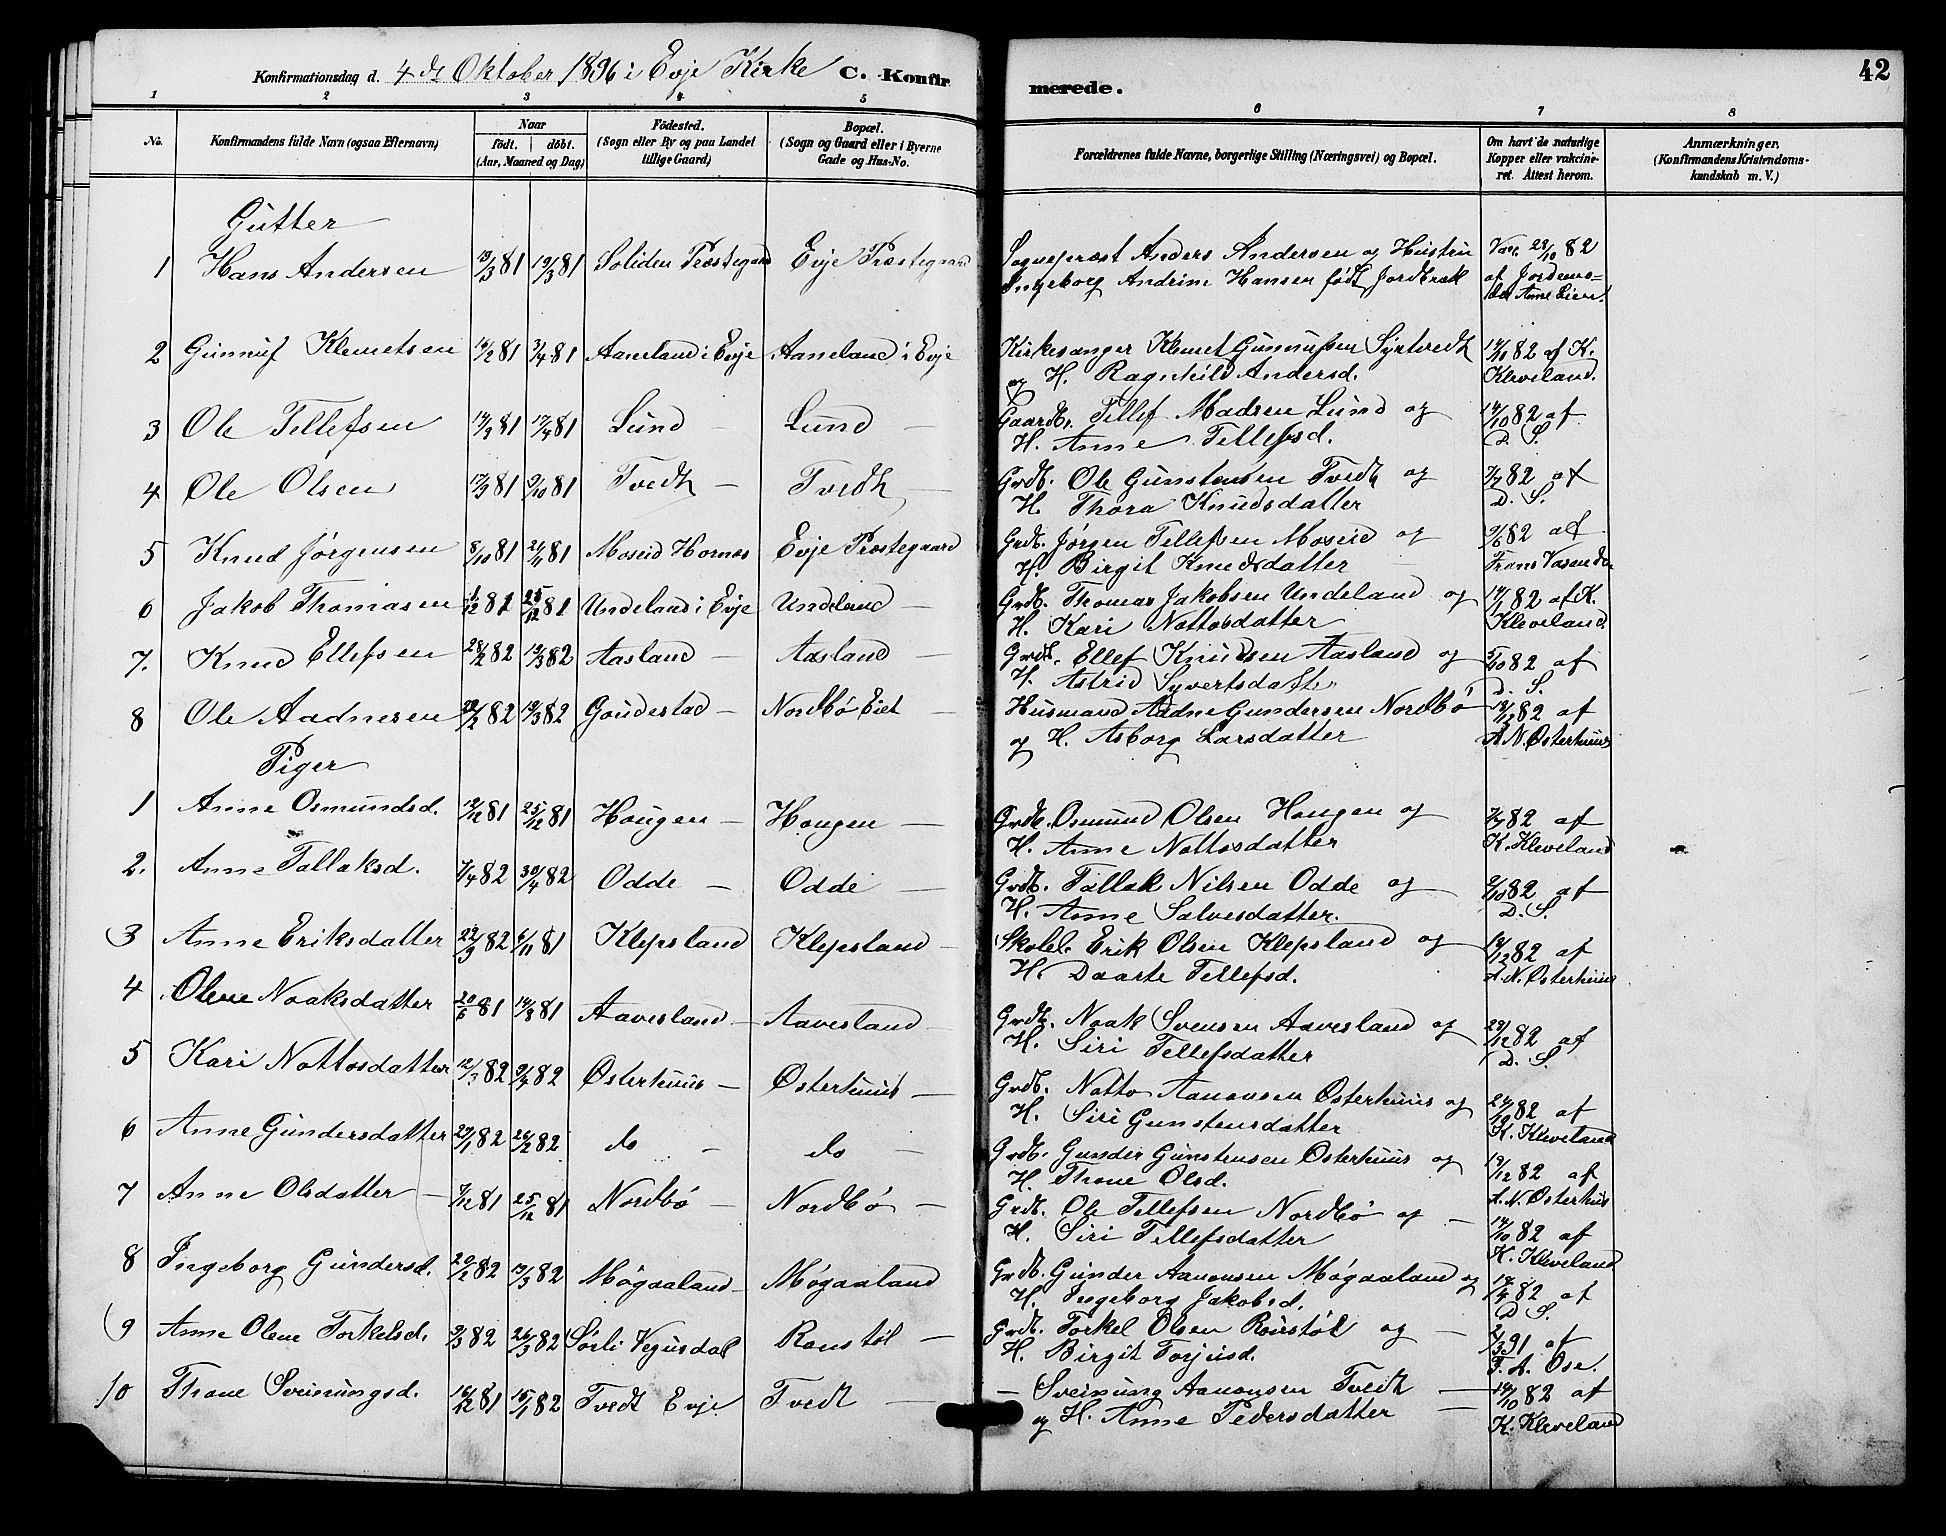 Konfirmationsdag d. 4de Oktober 1896 i Evje Kirke C. Konfirmerede. 42
1 2 3 4 5 6 7 8
No. Konfirmandens fulde Navn (ogsaa Efternavn) Naar født. døbt. (Aar, Maaned og Dag) Fødested. (Sogn eller By og paa Landet tillige Gaard) Bopæl. (Sogn og Gaard eller i Byerne Gade og Hus-No. Forældrenes fulde Navne, borgerlige Stilling (Næringsvei) og Bopæl. Om havt de naturlige Kopper eller vakcineret. Attest herom. Anmærkninger. (Konfirmandens Kristendomskundskab m. V.)
Gutter
1 Hans Andersen 81 81 Soliden Præstegaard Evje Præstegaard Sogneprest Anders Andersen og Hustru Vac. 23/10 82
Ingeborg Andrine Hansen født af Jordemo-
der Anne
2 Gunnuf Klemetsen 16/2 81 3/4 81 Aaneland i Evje Aaneland i Evje Kirkesanger Klemet Gunnufsen Syrtvedt 14/10 82 af K.
og H. Ragnhild Andersd. Kleveland.
3 Ole Tellefsen 14/3 81 17/4 81 Lund — Lund — Gaardb. Tellef Madsen Lund og 14/10 82 af
H. Anne Tellefsd. D. S.
4 Ole Olsen 17/9 81 9/10 81 Tvedt — Tvedt — Grdb. Ole Gunstensen Tvedt og 7/7 82 af
H. Thora Knudsdatter D. S.
5 Knud Jørgensen 8/10 81 21/11 81 Moseid Hornnes Evje Præstegaard Grdb. Jørgen Tellefsen Moseid og 9/6 82 af
H. Birgit Knudsdatter Frans
6 Jakob Thomasen 1/12 81 25/12 81 Undeland i Evje Undeland — Grdb. Thomas Jakobsen Undeland og 14/1 82 af K.
H. Kari Nottosdatter Kleveland.
7. Knud Ellefsen 28/2 82 19/3 82 Aasland — Aasland — Grdb. Ellef Knudsen Aasland og 5/10 82 af
H. Astrid Syvertsdatter D. S.
8 Ole Aadnesen 82 19/3 82 Goudestad — Nordbö Eiet — Husmand Aadne Gundersen Nordbö 82 af
og H. Asborg Larsdatter A. N. Østerhuus
Piger
1 Anne Osmundsd. 81 25/12 81 Hougen — Hougen — Grdb. Osmund Olsen Hougen og 7/7 82 af
H. Anne Nottosdatter K. Kleveland
2. Anne Tallaksd. 7/4 82 30/4 82 Odde — Odde — Grdb. Tallak Nilsen Odde og 9/10 82 af
H. Anne Salvesdatter. D. S.
3 Anne Eriksdatter 82 6/11 81 Klepsland Klepsland — Skolel. Erik Olsen Klepsland og 19/12 82 af
H. Daarte Tellefsd. A. N. Østerhuus
4 Olene Noaksdatter 20/6 81 14/8 81 Aavesland — Aavesland — Grdb. Noak Svensen Aavesland og 29/12 82 af
H. Siri Tellefsdatter D. S.
5 Kari Nottosdatter 12/3 82 9/4 82 Østerhuus — Østerhuus — Grdb. Notto Aanonsen Østerhuus og 24/10 82 af
H. Siri Gunstensdatter K. Kleveland
6 Anne Gundersdatter 82 26/2 82 do — do — Grdb. Gunder Gunstensen Østerhuus og 19/12 82 af
H. Thone Olsd. A. N. Østerhus
7 Anne Olsdatter — 7/12 81 25/12 81 Nordbö — Nordbö — Grdb. Ole Tellefsen Nordbö og — 14/10 82 af
H. Siri Tellefsdatter K. Kleveland
8 Ingeborg Gundersd. 82 82 Møgaaland — Møgaaland Grdb. Gunder Aanonsen Møgaaland og 82 af
H. Ingeborg Jakobsd. D. S.
9 Anne Olene Torkelsd. 9/3 82 26/3 82 Sørli Vegusdal Ronstøl — Grdb. Torkel Olsen Ronstøl og — 2/3 91 af
H. Birgit Torjusd. T. A. Ose.
10 Thone Sveinungsd. 16/12 81 15/1 82 Tvedt Evje Tvedt — — Sveinung Aanonsen Tvedt — 14/10 82 af
og H. Anne Pedersdatter — K. Kleveland